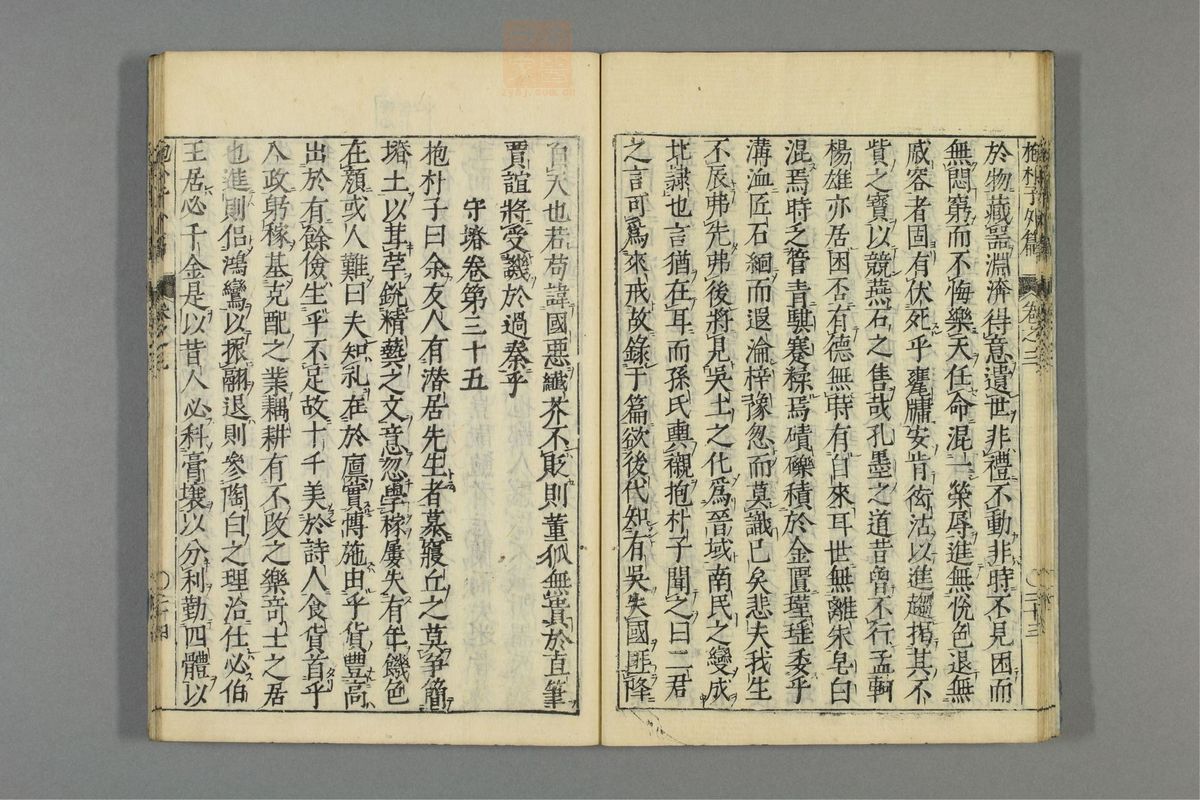 抱朴子外篇　卷之三　〇二十三
於物藏器淵洿得意遺世非禮不動非時不見困而
無悶窮而不悔樂天任命混一榮辱進無悅色退無
戚容者固有伏死乎甕牖安肯衒沽以進趨揭其不
貲之寶以競燕石之售哉孔墨之道昔曾不行孟軻
楊雄亦居困否有德無時有自來耳世無離朱皂白
混焉時乏管青騏蹇糅焉磧礫積於金匱瑾瑤委乎
溝洫匠石緬而遐淪梓豫忽而莫識已矣悲夫我生
不辰弗先弗後將見吳土之化爲晉域南民之變成
北隸也言猶在耳而孫氏輿櫬抱朴子聞之曰二君
之言可爲來戒故錄于篇欲後代知有吳失國匪降
自天也若苟諱國惡纖芥不貶則董狐無貴於直筆
賈誼將受譏於過秦乎
守塉卷第三十五
抱朴子曰余友人有潛居先生者慕寢丘之莫爭簡
塉土以葺宇銳精藝文意忽學稼屢失有年饑色
在顏或人難曰夫知礼在於廪實博施由乎貨豊高
出於有餘儉生乎不足故十千美於詩人食貨首乎
八政躬稼基克配之業耦耕有不改之樂竒士之居
也進則侶鴻鸞以振翮退則參陶白之理治仕必伯
王居必千金是以昔人必科膏壤以分利勤四體以
〇二十四
zysj.com.cn